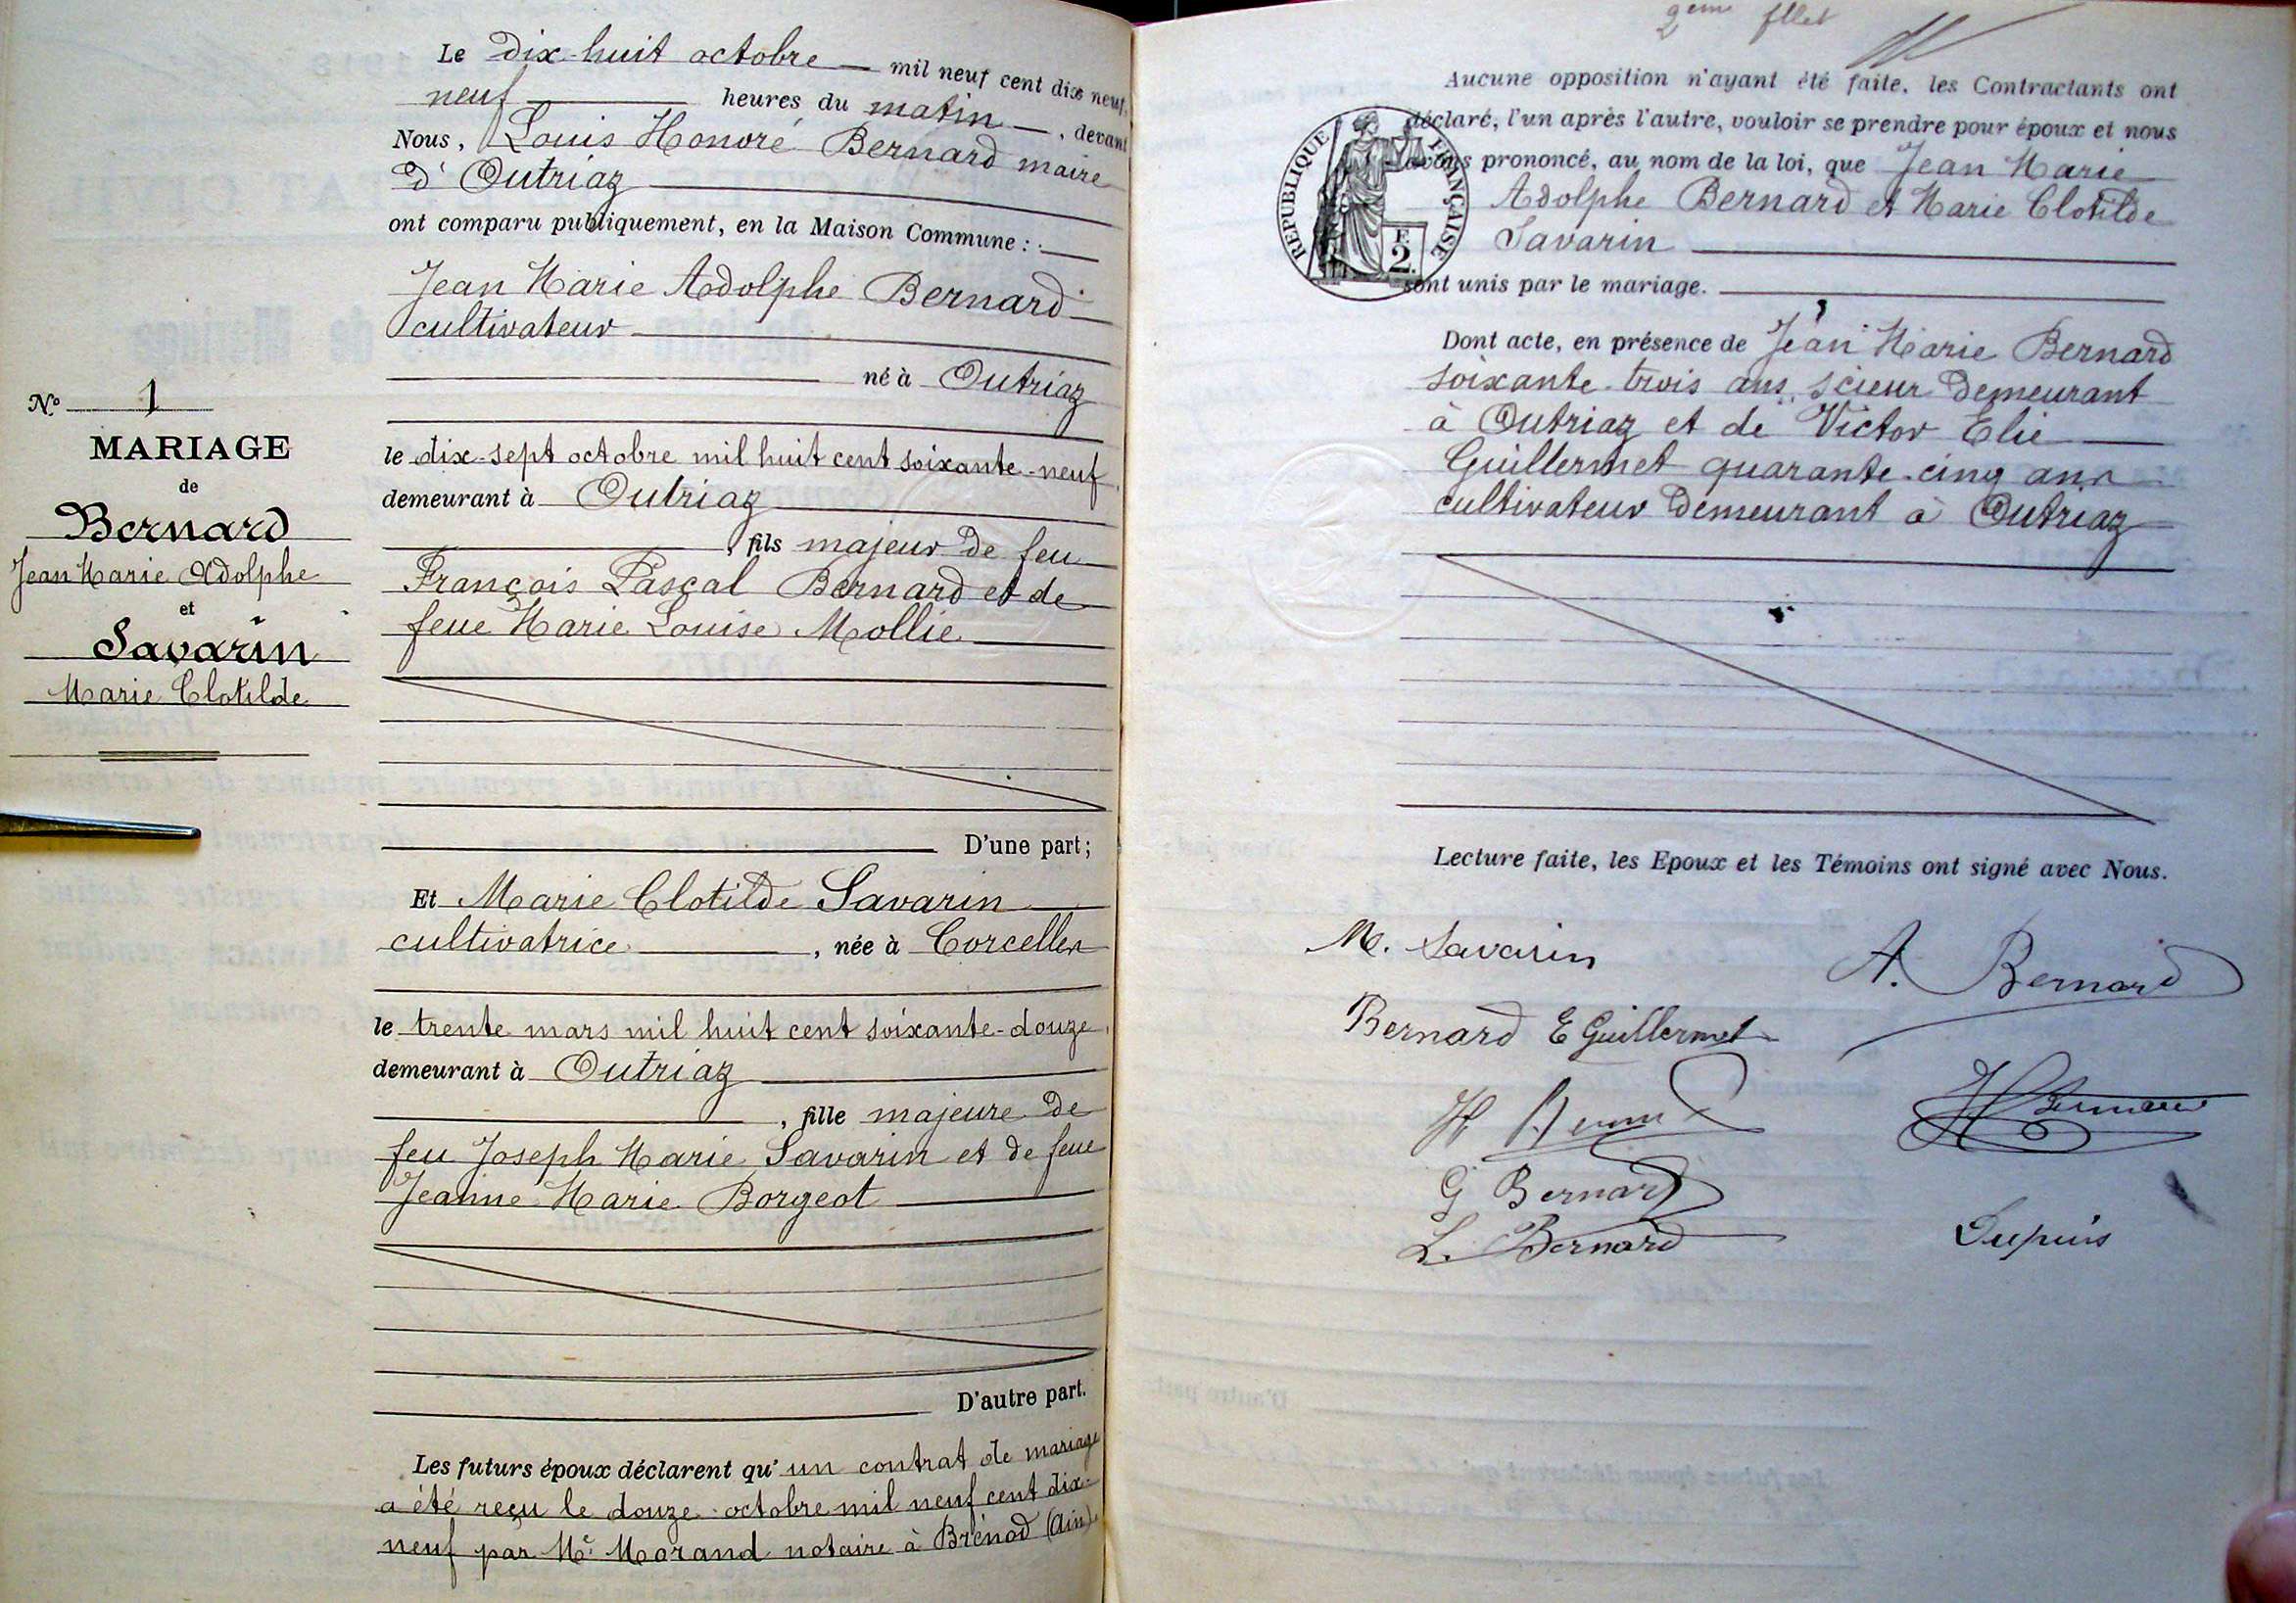 Le dix-huit octobre mil neuf cent dix neuf,
neuf heures du matin, devant
Nous, Louis Honoré Bernard maire
d'Outriaz
ont comparu publiquement, en la Maison Commune :
Jean Marie Adolphe Bernard
cultivateur
né à Outriaz
le dix-sept octobre mil huit cent soixante-neuf
demeurant à Outriaz
, fils majeur de feu
François Pascal Bernard et de
feue Marie Louise Mollie
D'une part;
Et Marie Clotilde Savarin
cultivatrice, née à Corcelles
le trente mars mil huit cent soixante-douze,
demeurant à Outriaz
, fille majeure de
feu Joseph Marie Savarin et de feue
Jeanne Marie Borgeot
D'autre part.
Les futurs époux déclarent qu'un contrat de mariage
a été reçu le douze octobre mil neuf cent dix-
neuf par Me Morand notaire à Brénod (Ain).
No 1
MARIAGE
de
Bernard
Jean Marie Adolphe
et
Savarin
Marie Clotilde
2eme fllet
Aucune opposition n'ayant été faite, les Contractants ont
déclaré, l'un après l'autre, vouloir se prendre pour époux et nous
avons prononcé, au nom de la loi, que Jean Marie
Adolphe Bernard et Marie Clotilde
Savarin
sont unis par le mariage.
RÉPUBLIQUE FRANÇAISE
F.
2.
Dont acte, en présence de Jean Marie Bernard
soixante-trois ans, scieur demeurant
à Outriaz et de Victor Elie
Guillermet quarante-cinq ans
cultivateur demeurant à Outriaz
Lecture faite, les Epoux et les Témoins ont signé avec Nous.
M. Savarin
A. Bernard
Bernard E Guillermet
H Bernard
G Bernard
L. Bernard
Dupuis